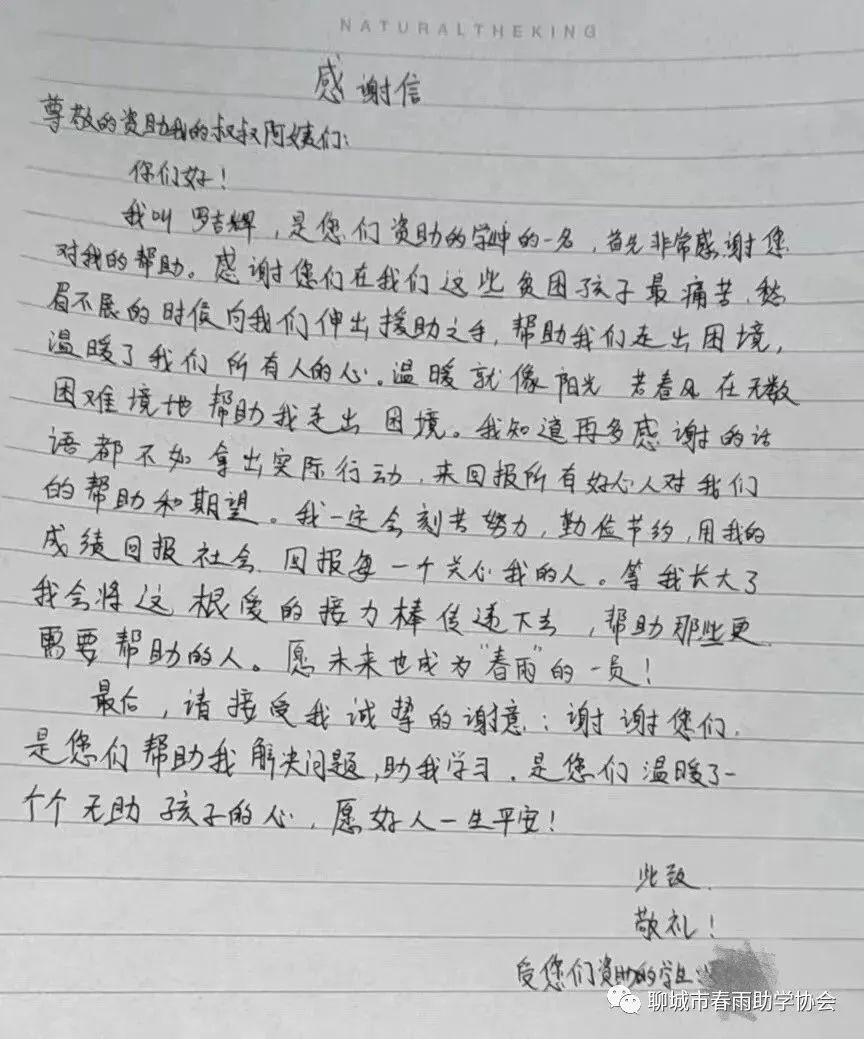 NATURALTHEKING
感谢信
尊敬的资助我的叔叔阿姨们:
你们好!
我叫罗吉辉,是您们资助的学中的一名,首先非常感谢您
对我的帮助。感谢您们在我们这些贫困孩子最痛苦、愁
眉不展的时候向我们伸出援助之手,帮助我们走出困境,
温暖了我们所有人的心。温暖就像阳光 若春风在无数
困难境地帮助我走出困境。我知道再多感谢的话
语都不如拿出实际行动,来回报所有好心人对我们
的帮助和期望。我一定会刻苦努力,勤俭节约,用我的
成绩回报社会、回报每一个关心我的人。等我长大了
我会将这根爱的接力棒传递下去,帮助那些更
需要帮助的人。愿未来也成为“春雨”的一员!
最后,请接受我诚挚的谢意:谢谢您们,
是您们帮助我解决问题,助我学习,是您们温暖了一
个个无助孩子的心,愿好人一生平安!
此致
敬礼!
受您们资助的学生
聊城市春雨助学协会